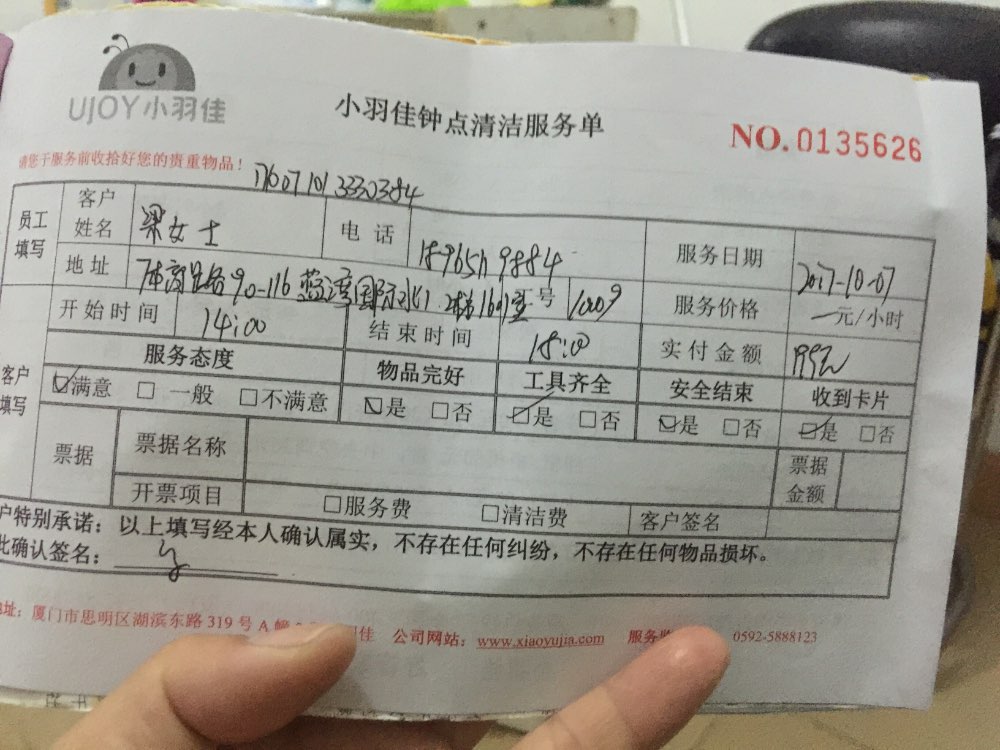 UJOY小羽佳
小羽佳钟点清洁服务单
NO.0135626
请您于服务前收拾好您的贵重物品!
员工填写 客户姓名 梁女士 电话 服务日期 2017-10-07
地址 90-116 蓝湾国际 工号 服务价格 一元/小时
开始时间 14:00 结束时间 18:00 实付金额
客户填写 服务态度 物品完好 工具齐全 安全结束 收到卡片
☑满意 □一般 □不满意 ☑是 □否 ☑是 □否 ☑是 □否 ☑是 □否
票据 票据名称 票据金额
开票项目 □服务费 □清洁费 客户签名
户特别承诺:以上填写经本人确认属实,不存在任何纠纷,不存在任何物品损坏。
此确认签名:
地址:厦门市思明区湖滨东路 319 号 A 幢 佳 公司网站:www.xiaoyujia.com 服务 0592-5888123